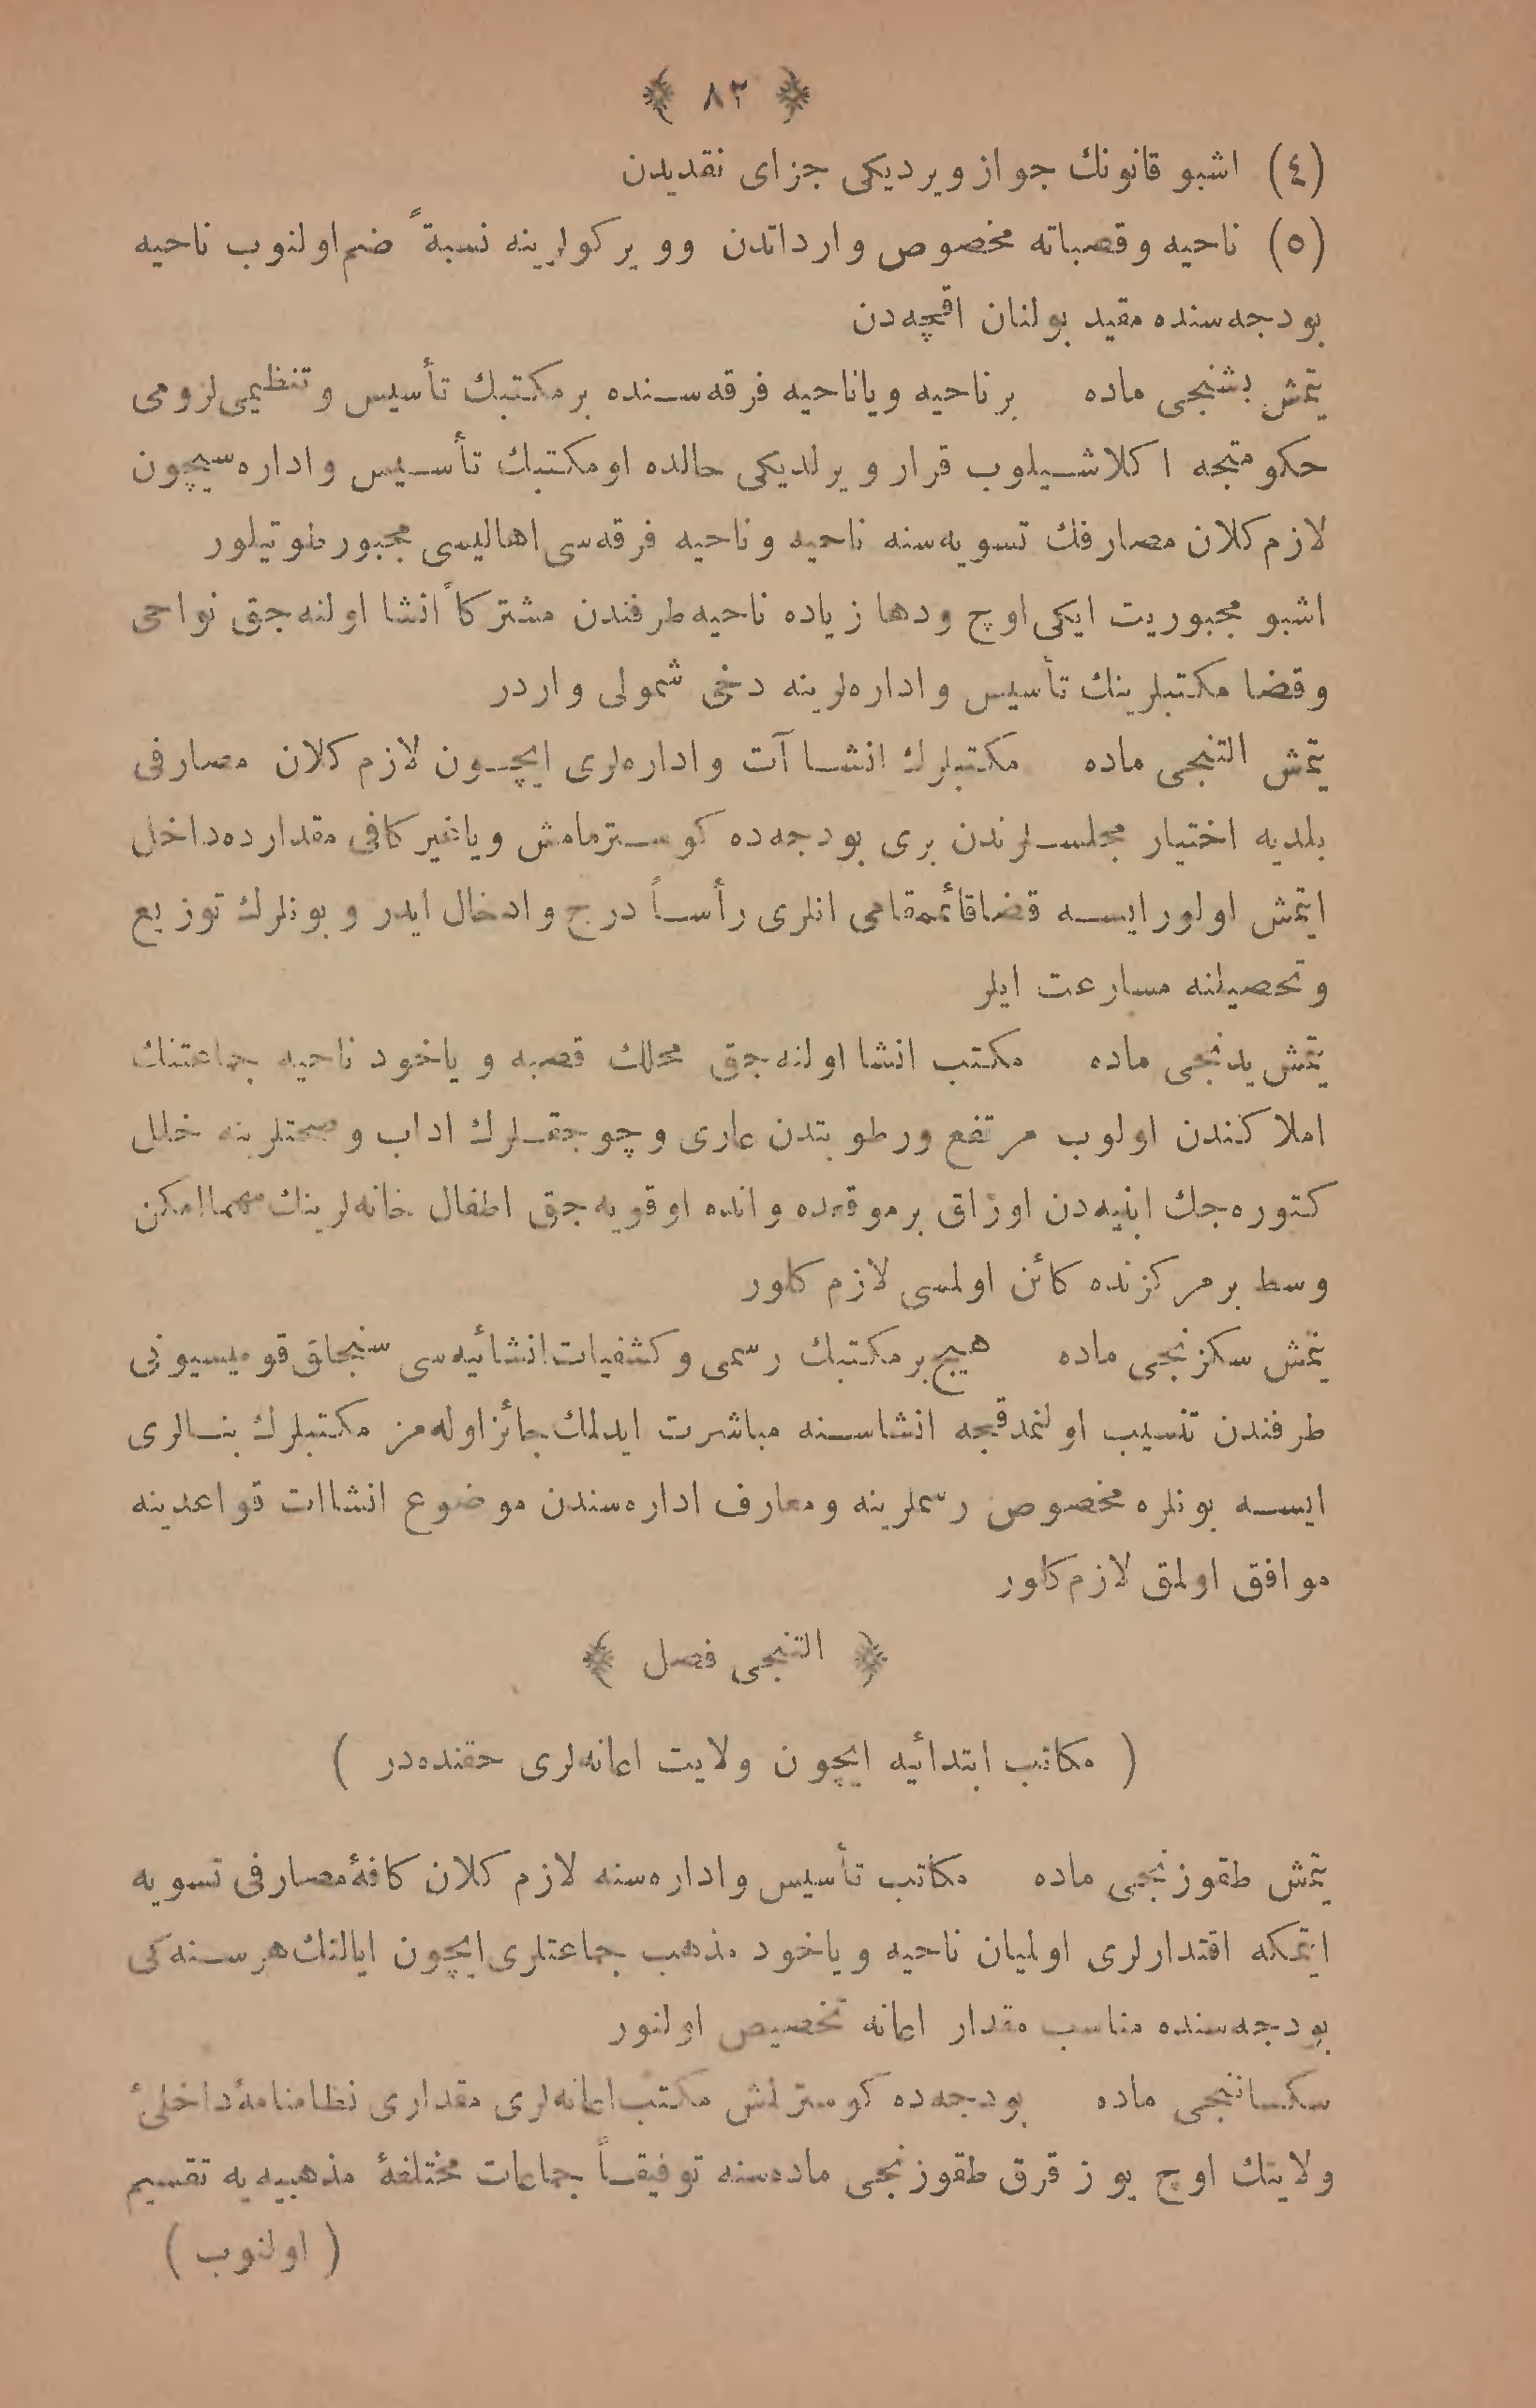 ﴿ ٨٢ ﴾
(٤) اشبو قانونك جواز ويرديكی جزای نقديدن
(٥) ناحيه وقصباته مخصوص وارداتدن وويركولرينه نسبةً ضم اولنوب ناحيه
بودجه‌سنده مقيد بولنان اقچه‌دن
يتمش بشنجی ماده برناحيه وياناحيه فرقه‌سنده برمكتبك تأسيس وتنظيمی لزومی
حكومتجه اكلاشيلوب قرار ويرلديكی حالده اومكتبك تأسيس واداره‌سيچون
لازم كلان مصارفك تسويه‌سنه ناحيه وناحيه فرقه‌سی اهاليسی مجبورطوتيلور
اشبو مجبوريت ايكی اوچ ودها زياده ناحيه طرفندن مشتركاً انشا اولنه‌جق نواحی
وقضا مكتبلرينك تأسيس واداره‌لرينه دخی شمولی واردر
يتمش التنجی ماده مكتبلرك انشاآت واداره‌لری ايچون لازم كلان مصارفی
بلديه اختيار مجلسلرندن بری بودجه‌ده كوسترمامش وياغير كافی مقدارده‌داخل
ايتمش اولورايسه قضاقائمقامی انلری رأساً درج وادخال ايدر وبونلرك توزيع
وتحصيلنه مسارعت ايلر
يتمش يدنجی ماده مكتب انشا اولنه‌جق محللك قصبه و ياخود ناحيه جماعتنك
املاكندن اولوب مرتفع ورطوبتدن عاری وچوجقلرك اداب وصحتلرينه خلل
كتوره‌جك ابنيه‌دن اوزاق برموقعده وانده اوقويه‌جق اطفال خانه‌لرينك مهما امكن
وسط برمركزنده كائن اولمسی لازم كلور
يتمش سكزنجی ماده هيچ برمكتبك رسمی وكشفيات انشائيه‌سی سنجاق قوميسيونی
طرفندن تنسيب اولنمدقجه انشاسنه مباشرت ايدلمك جائزاوله‌مز مكتبلرك بنالری
ايسه بونلره مخصوص رسملرينه ومعارف اداره‌سندن موضوع انشاات قواعدينه
موافق اولمق لازم كلور
﴿ التنجی فصل ﴾
( مكاتب ابتدائيه ايچون ولايت اعانه‌لری حقنده‌در )
يتمش طقوزنجی ماده مكاتب تأسيس واداره‌سنه لازم كلان كافۀ مصارفی تسويه
ايتمكه اقتدارلری اولميان ناحيه وياخود مذهب جماعتلری ايچون ايالتك هرسنه‌كی
بودجه‌سنده مناسب مقدار اعانه تخصيص اولنور
سكساننجی ماده بودجه‌ده كوسترلمش مكتب اعانه‌لری مقداری نظامنامۀ داخلئ
ولايتك اوچ يوز قرق طقوزنجی ماده‌سنه توفيقاً جماعات مختلفۀ مذهبيه‌يه تقسيم
( اولنوب )